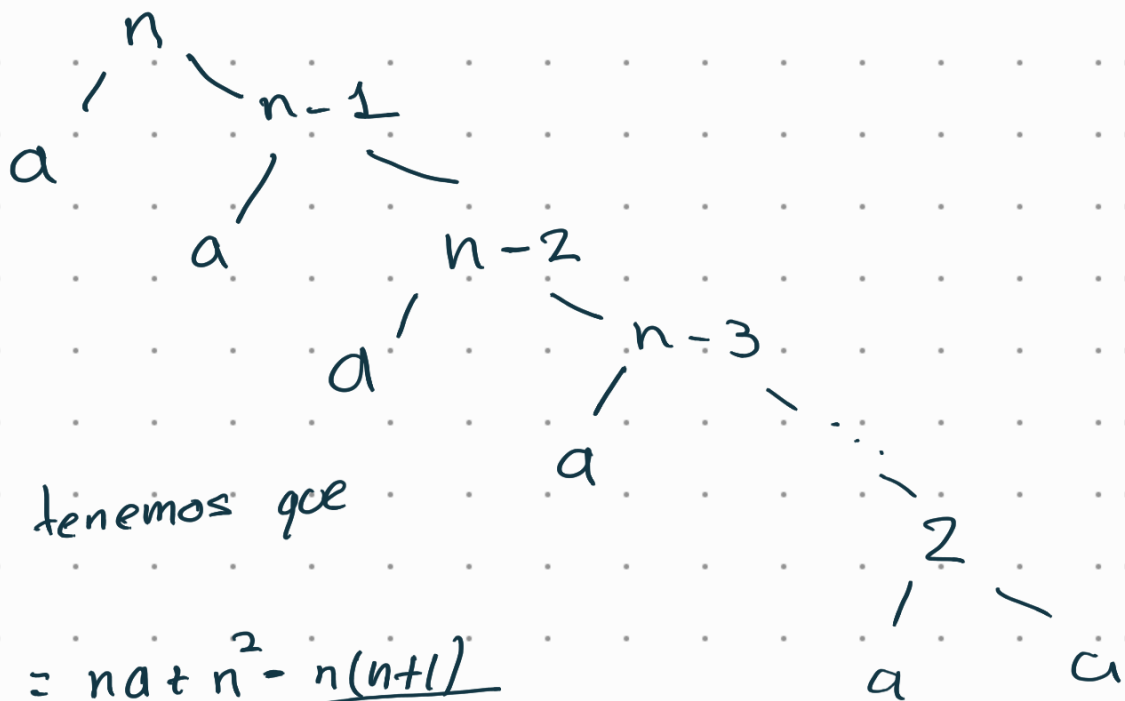 n
n-1
a
a
n-2
a
n-3
a
tenemos que
2
= na + n² - n(n+1)
a
a